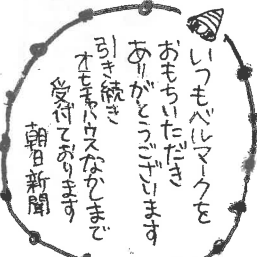 いつもベルマークを
おもちいただき
ありがとうございます
引き続き
オモチャハウスなかしまで
受付ております
朝日新聞